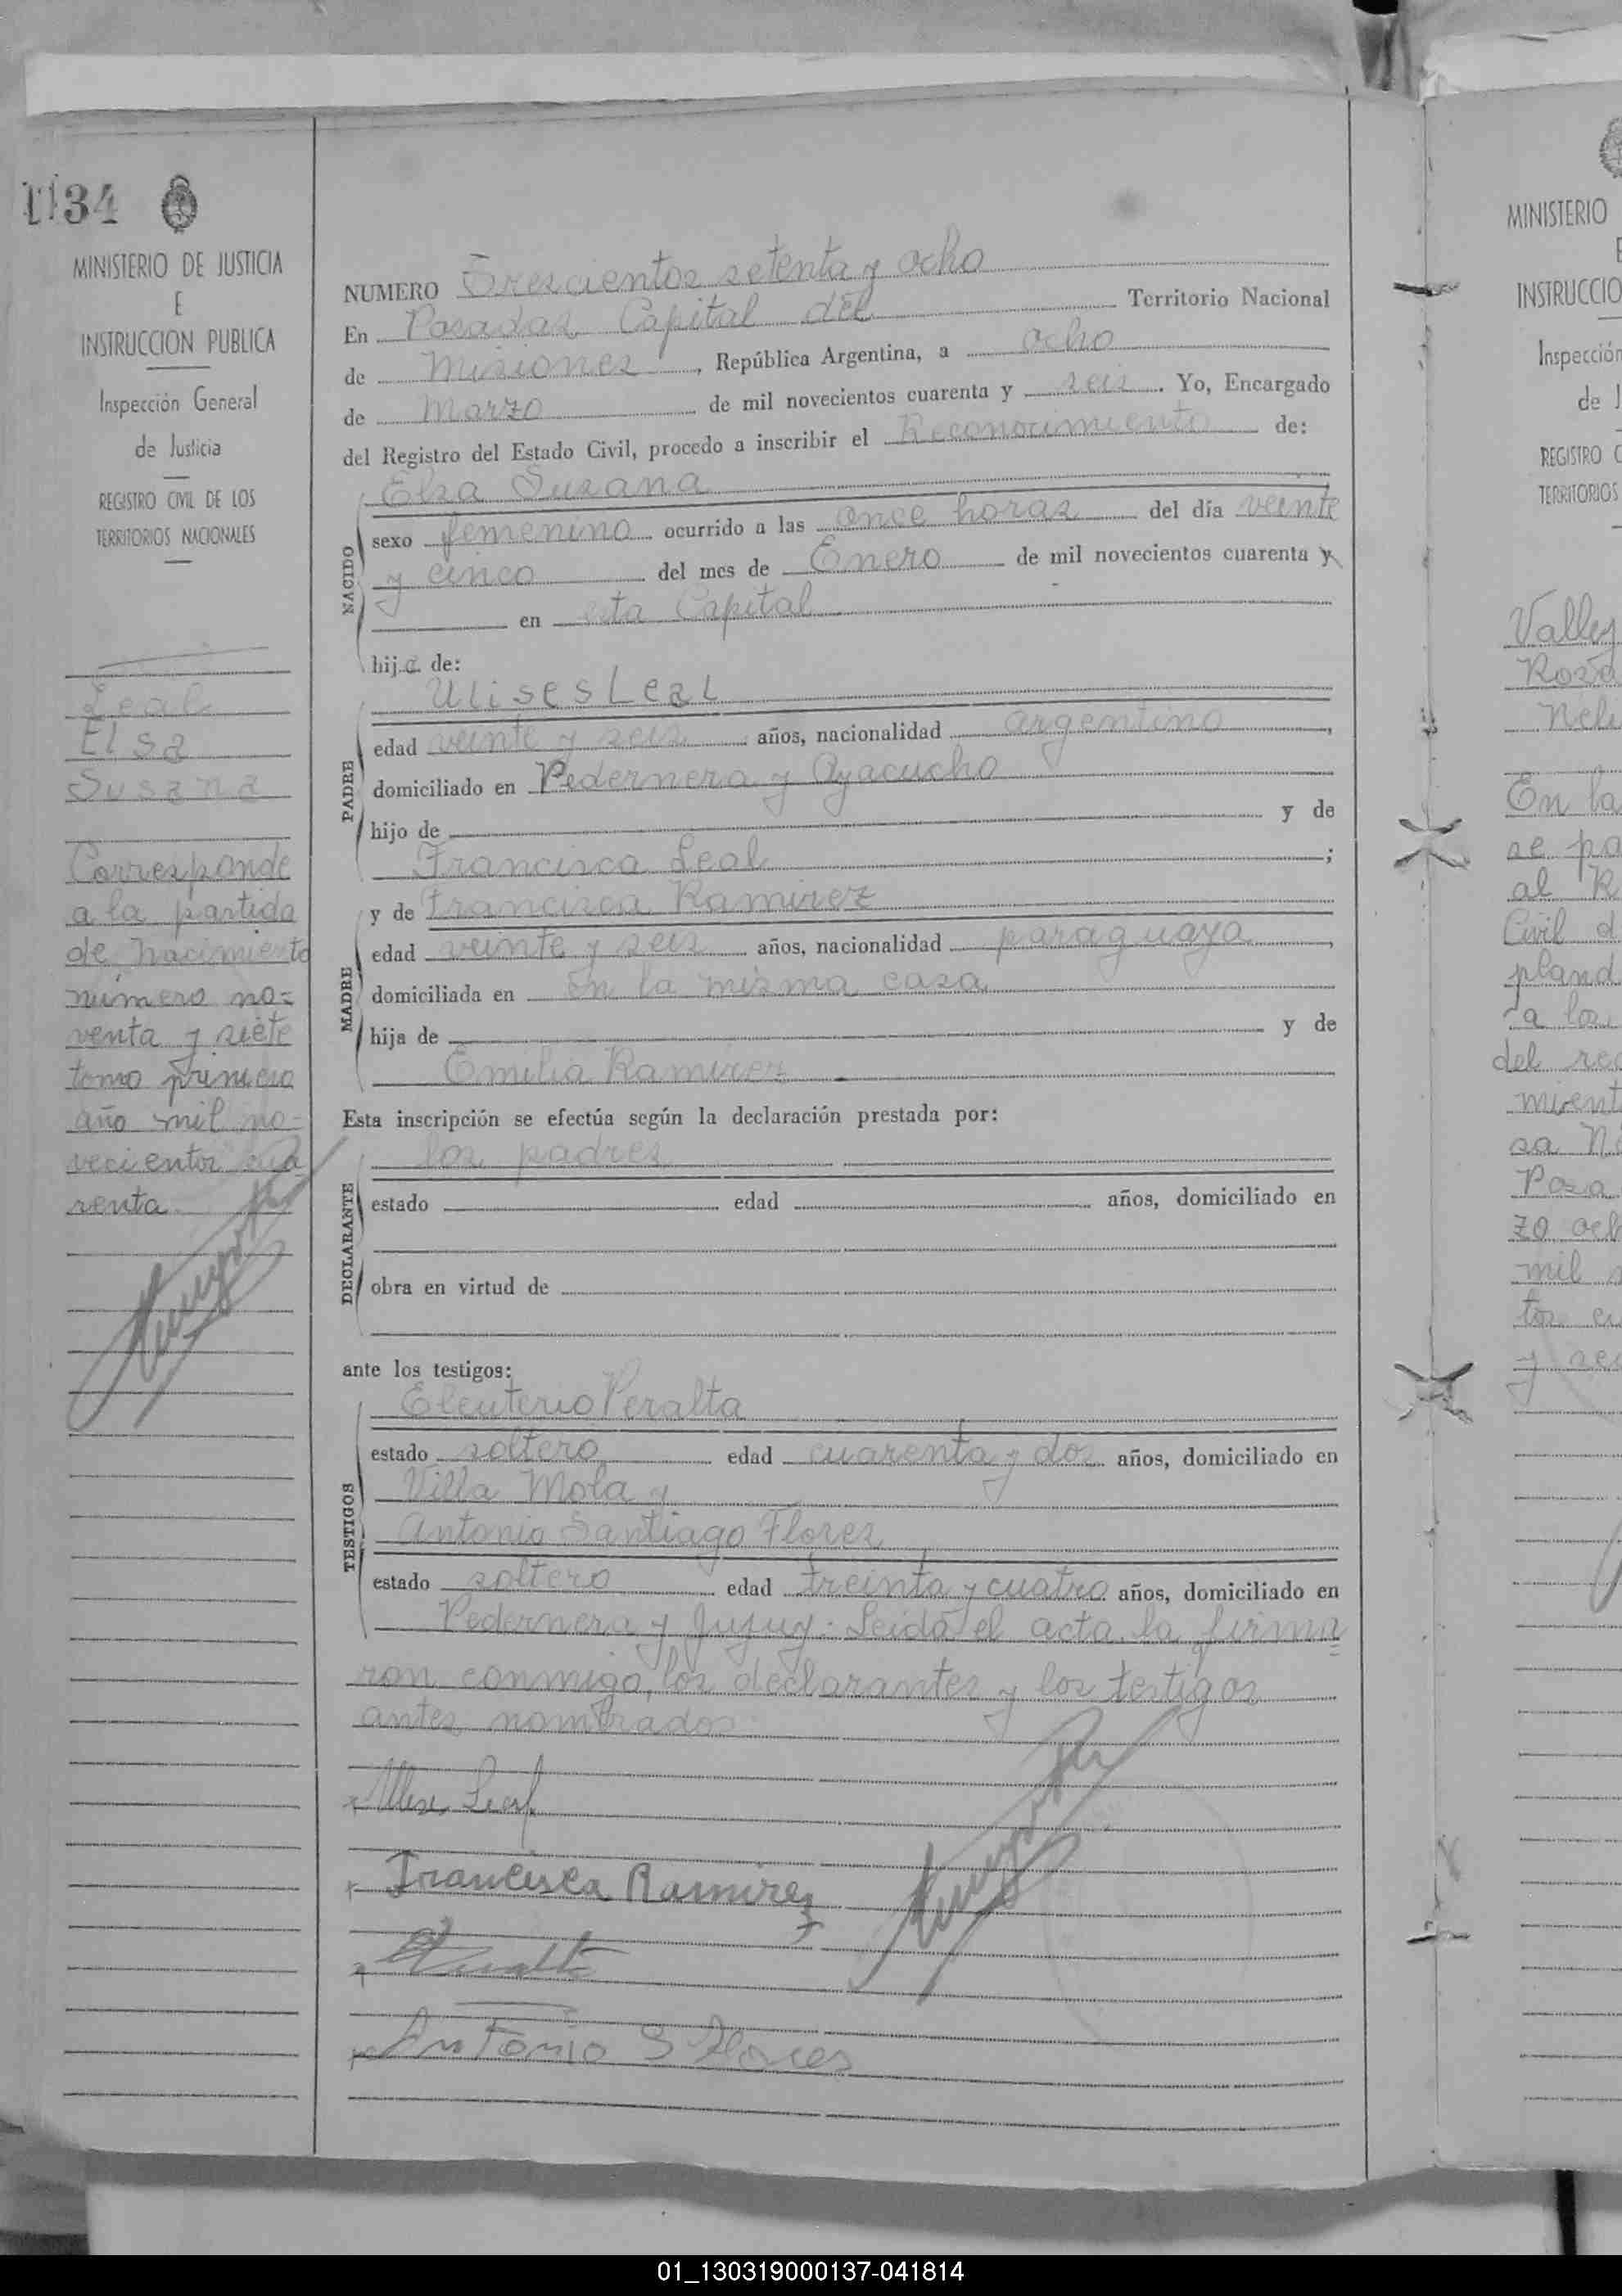 1134
MINISTERIO DE JUSTICIA
E
INSTRUCCION PUBLICA
Inspección General
de Justicia
REGISTRO CIVIL DE LOS
TERRITORIOS NACIONALES
Leal
Elsa
Susana
Corresponde
a la partida
de nacimiento
número no=
venta y siete
tomo primero
año mil no-
vecientos cua
renta
NUMERO Trescientos setenta y ocho
En Posadas Capital del Territorio Nacional
de Misiones, República Argentina, a ocho
de Marzo de mil novecientos cuarenta y seis. Yo, Encargado
del Registro del Estado Civil, procedo a inscribir el Reconocimiento de:
NACIDO
Elsa Susana
sexo femenino ocurrido a las once horas del día veinte
y cinco del mes de Enero de mil novecientos cuarenta y
en esta Capital
hija de:
PADRE
Ulises Leal
edad veinte y seis años, nacionalidad argentino,
domiciliado en Pedernera y Ayacucho
hijo de y de
Francisca Leal;
MADRE
y de Francisca Ramirez
edad veinte y seis años, nacionalidad paraguaya,
domiciliada en en la misma casa
hija de y de
Emilia Ramirez
Esta inscripción se efectúa según la declaración prestada por:
DECLARANTE
los padres
estado edad años, domiciliado en
obra en virtud de
ante los testigos:
TESTIGOS
Eleuterio Peralta
estado soltero edad cuarenta y dos años, domiciliado en
Villa Mola y
Antonio Santiago Flores
estado soltero edad treinta y cuatro años, domiciliado en
Pedernera y Jujuy: Leida el acta, la firma=
ron conmigo, los declarantes y los testigos
antes nombrados
Ulises Leal
Francisca Ramirez
Antonio S Flores
MINISTERIO
E
INSTRUCCIO
Inspección
de J
REGISTRO C
TERRITORIOS
Valle
Rosa
Nel
En la
se pa
al R
Civil d
pland
a los
del rec
mient
sa N
Posa
zo och
mil
tos cu
y sei
01_130319000137-041814